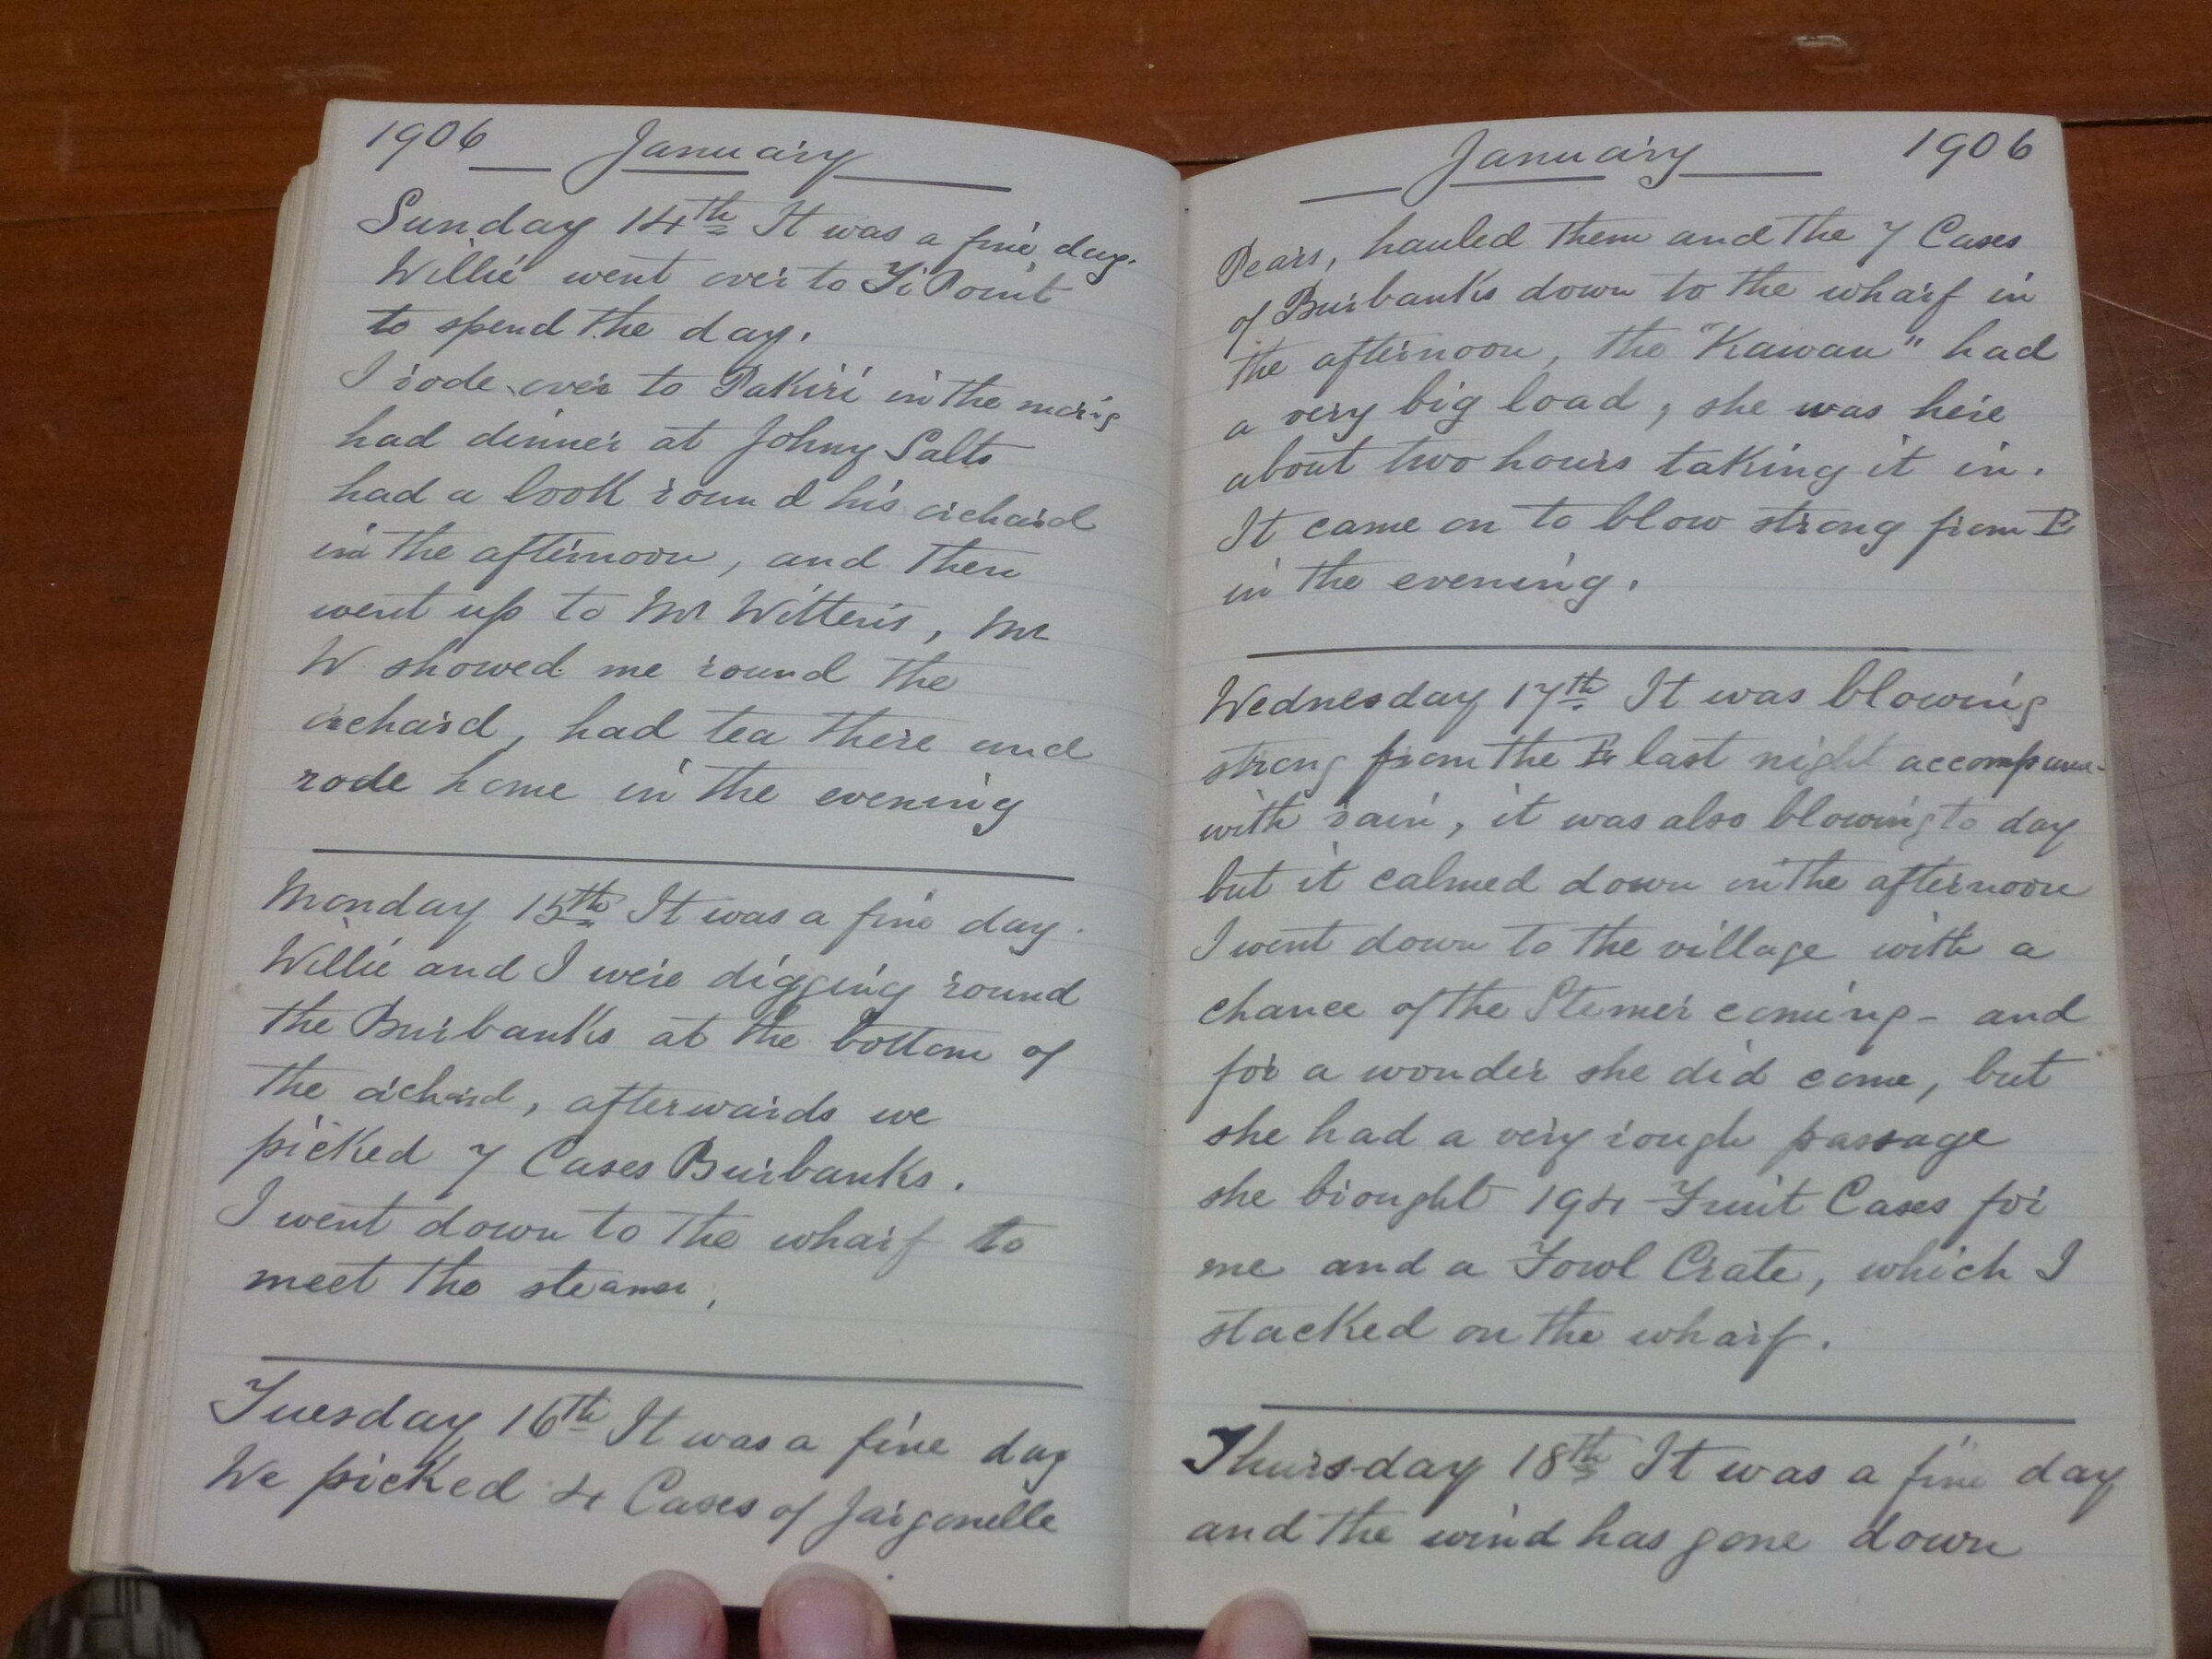 1906 January
Sunday 14th It was a fine day.
Willie went over to Ti Point
to spend the day.
I rode over to Pakiri in the morng
had dinner at Johny Salts
had a look round his orchard
in the afternoon, and then
went up to Mr Witten's, Mr
W. showed me round the
orchard, had tea there and
rode home in the evening
Monday 15th It was a fine day.
Willie and I were digging round
the Burbanks at the bottom of
the orchard, afterwards we
picked 7 Cases Burbanks.
I went down to the wharf to
meet the steamer,
Tuesday 16th It was a fine day
We picked 4 Cases of Jargonelle
January 1906
Pears, hauled them and the 7 Cases
of Burbanks down to the wharf in
the afternoon, the "Kawau" had
a very big load, she was here
about two hours taking it in.
It came on to blow strong from E
in the evening.
Wednesday 17th It was blowing
strong from the E last night
with rain, it was also blowing to day
but it calmed down in the afternoon
I went down to the village with a
chance of the Stemer coming - and
for a wonder she did come, but
she had a very rough passage
she brought 194 Fruit Cases for
me and a Fowl Crate, which I
stacked on the wharf.
Thursday 18th It was a fine day
and the wind has gone down